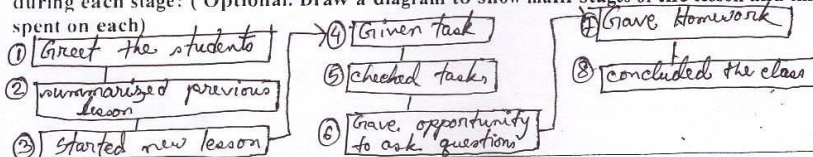 during each stage? ( Optional. Draw a diagram to show main stages of the lesson and
spent on each)
① Greet the students
② summarized previous
lesson
③ Started new lesson
④ Given task
⑤ checked tasks
⑥ Gave opportunity
to ask questions
⑦ Gave Homework
⑧ concluded the class